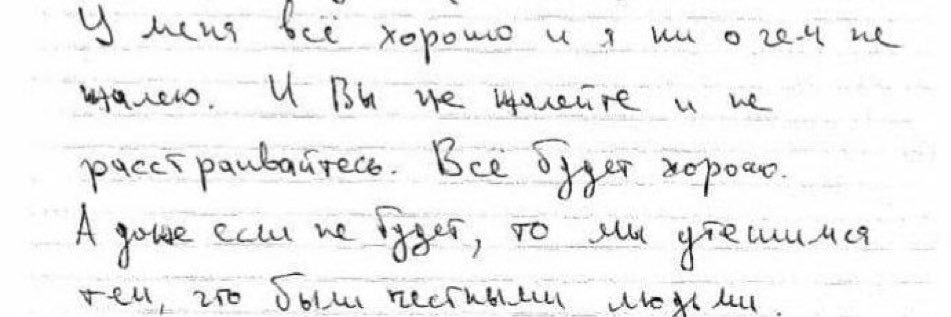 У меня всё хорошо и я ни о чем не
жалею. И Вы не жалейте и не
расстраивайтесь. Всё будет хорошо.
А даже если не будет, то мы утешимся
тем, что были честными людьми.